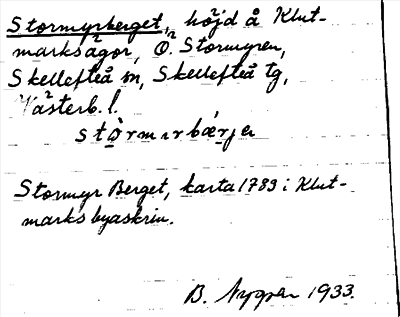 Stormyrberget, höjd å Klut-
marks ägor, O. Stormyren,
Skellefteå sn, Skellefteå tg,
Västerb. l.
stòrmırbærjer
Stormyr Berget, karta 1783 i Klut-
marks byaskrin.
B. Nygren 1933.